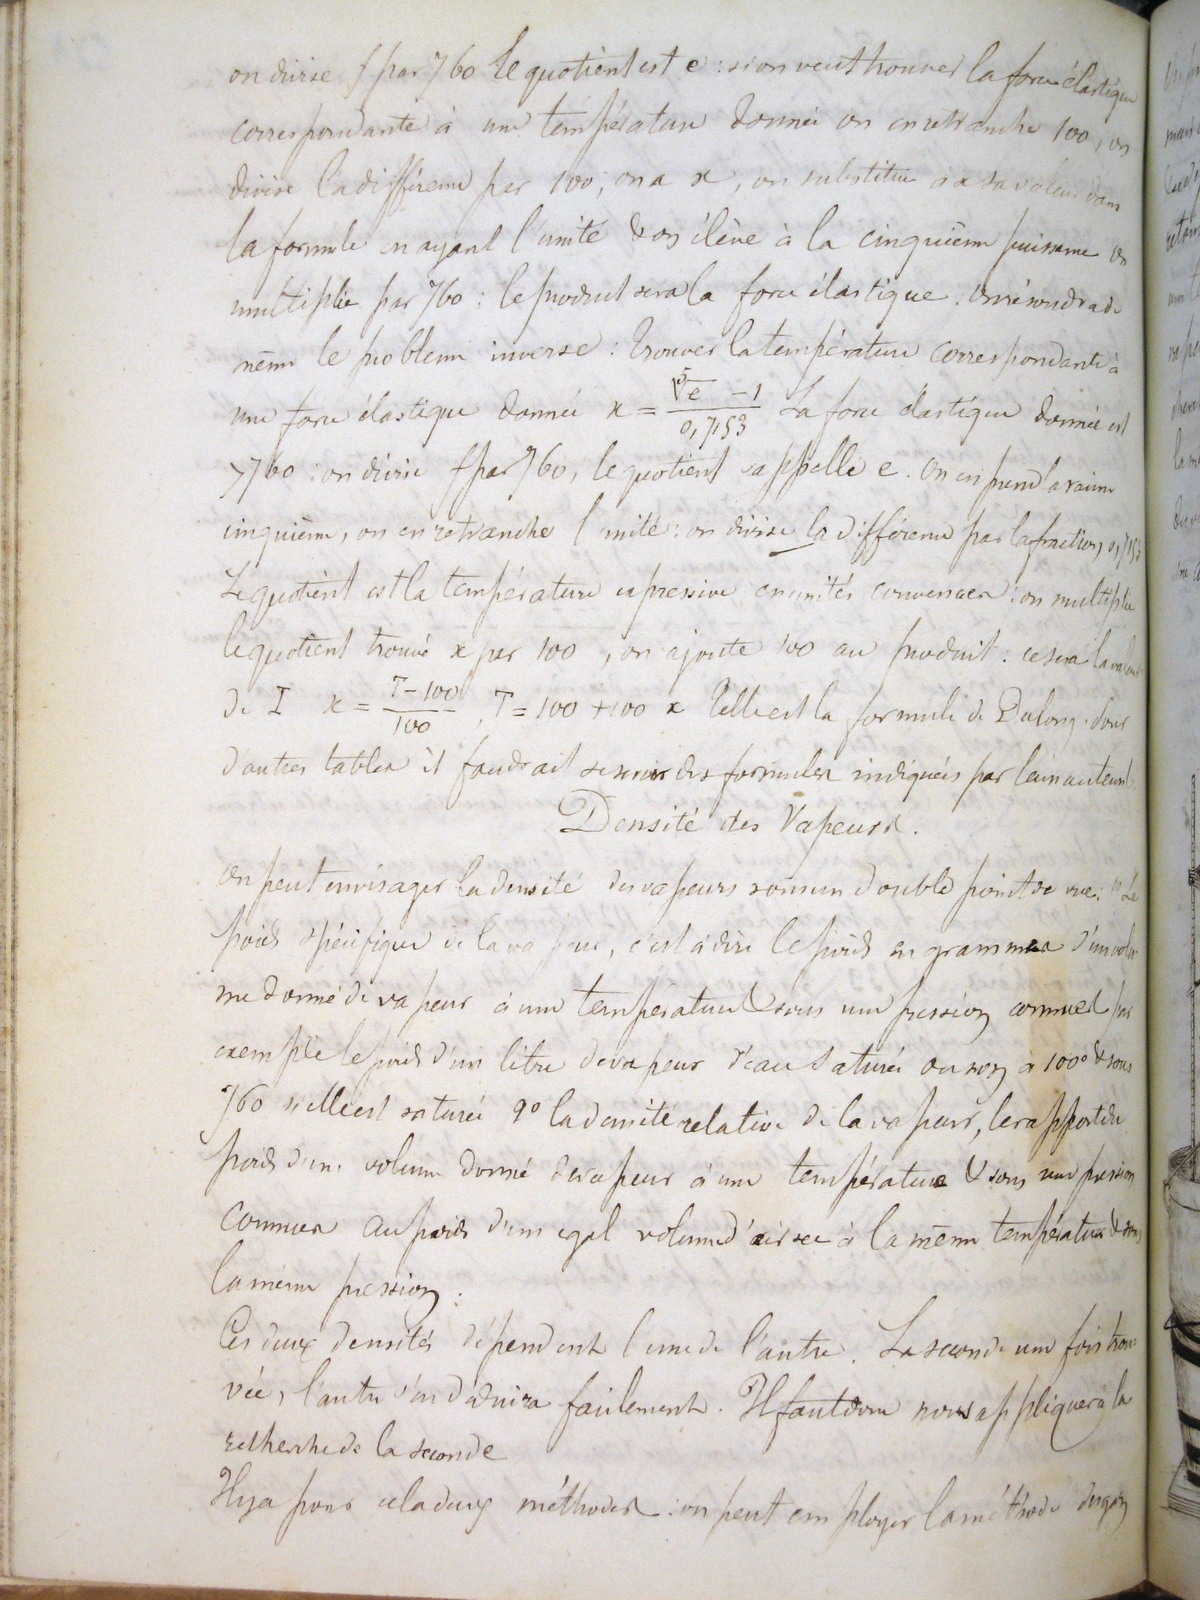 on divise f par 760 le quotient est e : si on veut trouver la force élastique
correspondante à une température donnée on en retranche 100, on
divise la différence par 100, on a x, on substitue à x sa valeur dans
la formule en ayant l'unité & on élève à la cinquième puissance on
multiplie par 760 : le produit sera la force élastique. On résoudra de
même le problème inverse : trouver la température correspondante à
une force élastique donnée x = (⁵√e − 1)/0,7153 La force élastique donnée est
>760 : on divise f par 760, le quotient s'appelle e. On en prend la racine
cinquième, on en retranche l'unité : on divise la différence par la fraction 0,7153
Le quotient est la température expressive en unités convenues : on multiplie
le quotient trouvé x par 100, on ajoute 100 au produit. ce sera la valeur
de T x = (T − 100)/100, T = 100 + 100 x Telle est la formule de Dulong. Pour
d'autres tables il faudrait se servir des formules indiquées par leurs auteurs.
Densité des Vapeurs.
On peut envisager la densité des vapeurs sous un double point de vue : 1º Le
poids spécifique de la vapeur, c'est à dire le poids en grammes d'un volu-
me donné de vapeur à une température & sous une pression connues par
exemple le poids d'un litre de vapeur d'eau saturée ou non à 100º & sous
760 si elle est saturée 2º la densité relative de la vapeur, le rapport du
poids d'un volume donné de vapeur à une température & sous une pression
connues au poids d'un égal volume d'air sec à la même température & sous
la même pression :
Ces deux densités dépendent l'une de l'autre. La seconde une fois trou-
vée, l'autre s'en déduira facilement. Il faut donc nous appliquer à la
recherche de la seconde
Il y a pour cela deux méthodes : on peut employer la méthode des gaz